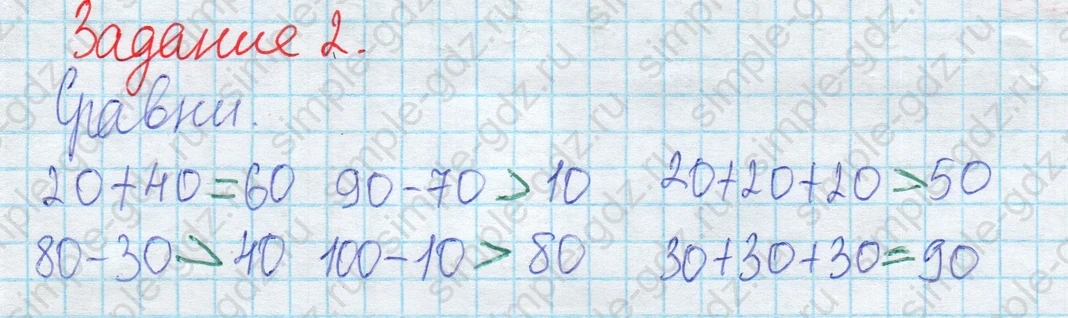 Задание 2.
Сравни.
20+40=60 90-70>10 20+20+20>50
80-30>40 100-10>80 30+30+30=90
simple-gdz.ru